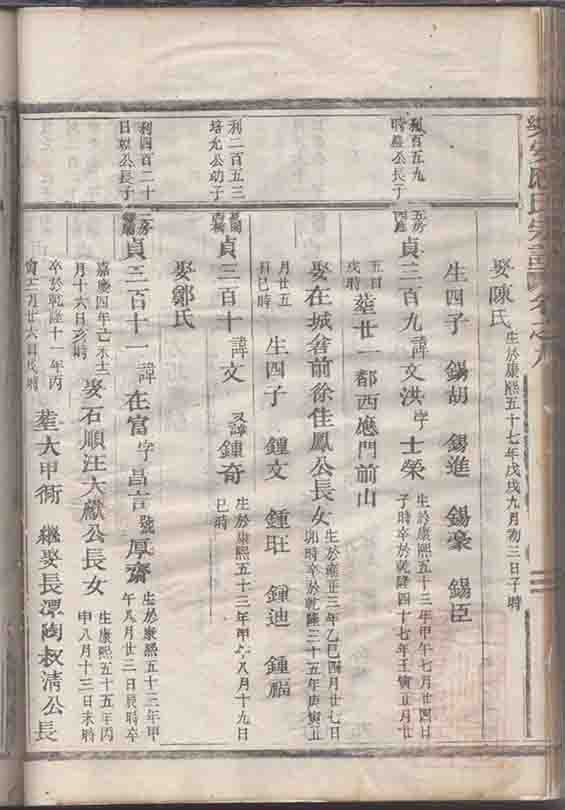 娶陳氏 生於康熙五十七年戊戌九月初三日子時
生四子 錫胡 錫進 錫豪 錫臣
利百五九
時 公長子
五房
貞三百九 諱文洪 字士榮 生於康熙五十三年甲午七月廿四日
子時卒於乾隆四十七年壬寅五月廿
五日
戌時 塟廿一都西應門前山
娶在城省前徐佳鳳公長女 生於雍正三年乙巳四月廿七日
卯時卒於乾隆三十五年庚寅五
月廿五
日巳時 生四子 鍾文 鍾旺 鍾迪 鍾福
利二百五三
培允公幼子
貞三百十 諱文 又諱鍾奇 生於康熙五十三年甲午八月十九日
巳時
娶鄒氏
利四百二十
日 公長子
二房
貞三百十一 諱在富 字昌言 號厚齋 生於康熙五十三年甲
午八月廿三日辰時卒
嘉慶四年己未十二
月十六日亥時 娶石順汪大獻公長女 生康熙五十五年丙
申八月十三日未時
卒於乾隆十一年丙
寅 月廿六日戌時 塟大甲術 繼娶長潭陶叔清公長